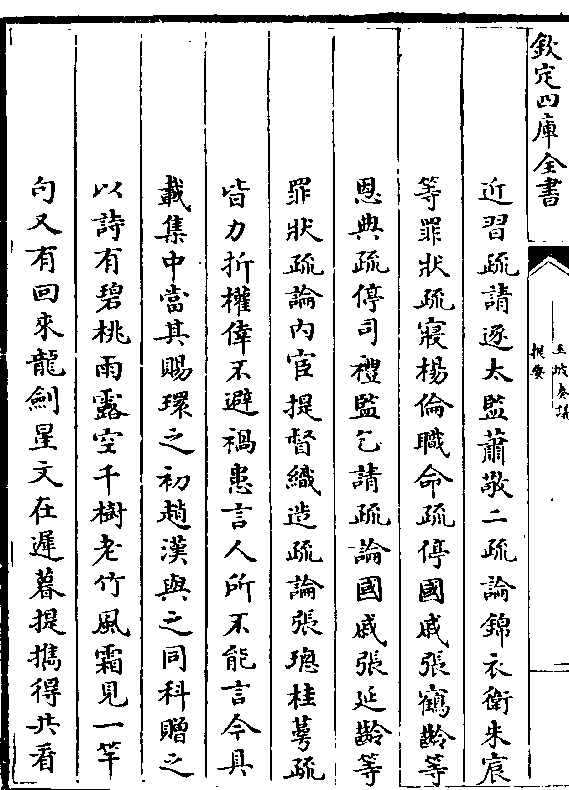 欽定四庫全書
玉坡奏議
提要
二
近習疏請逐太監蕭敬二疏論錦衣衛朱宸
等罪狀疏寢楊倫職命疏停國戚張鶴齡等
恩典疏停司禮監乞請疏論國戚張延齡等
罪狀疏論内官提督織造疏論張璁桂萼疏
皆力折權倖不避禍患言人所不能言今具
載集中當其賜環之初趙漢與之同科贈之
以詩有碧桃雨露空千樹老竹風霜見一竿
句又有回來龍劍星文在遲暮提攜得共看